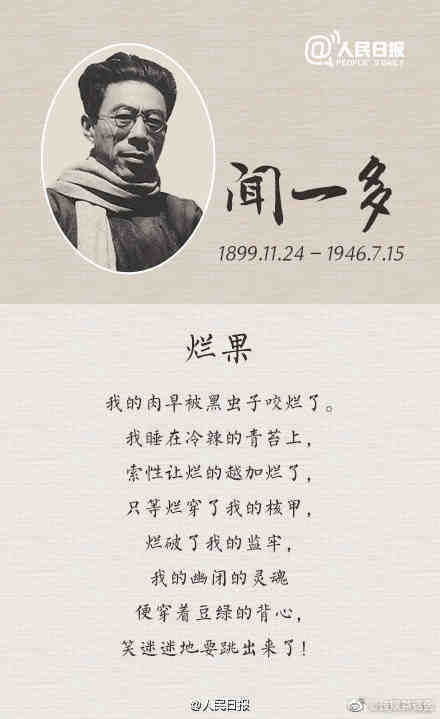 @人民日报
PEOPLE'S DAILY
闻一多
1899.11.24 – 1946.7.15
烂果
我的肉早被黑虫子咬烂了。
我睡在冷辣的青苔上，
索性让烂的越加烂了，
只等烂穿了我的核甲，
烂破了我的监牢，
我的幽闭的灵魂
便穿着豆绿的背心，
笑迷迷地要跳出来了！
@人民日报